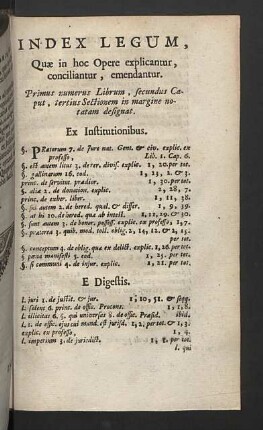 INDEX LEGUM,
Quæ in hoc Opere explicantur,
conciliantur, emendantur.
Primus numerus Librum, secundus Ca-
put, tertius Sectionem in margine no-
tatam designat.
Ex Institutionibus.
§. PRætorum 7. de Jure nat. Gent. & civ. explic. ex
professo, Lib. 1. Cap. 6.
§. est autem 3. de rer. divis. explic. 1, 20. per tot.
§. gallinarum 16. eod. 1, 23, 1. & 3.
princ. de servitut. prædior. 1, 30. per tot.
§. aliæ 2. de donation. explic. 2, 28, 7.
princ. de exher. liber. 1, 11, 38.
§. sui autem 2. de hered. qual. & differ. 1, 9, 39.
§. at hi 10. de hered. quæ ab intest. 1, 12, 29. & 30.
§. sunt autem 3. de bonor. possess. explic. ex professo, 1, 7.
§. præterea 3. quib. mod. toll. oblig. 2, 14, 11, & 2, 15.
per tot.
§. conceptum 4. de oblig. quæ ex delict. explic. 1, 26. per tot.
§. pæna manifesti 3. eod. 1, 25. per tot.
§. si communi 4. de injur. explic. 1, 21. per tot.
E Digestis.
L. juri 1. de justit. & jur. 1, 10, 51. & seqq.
l. solent 6. princ. de offic. Procons. 1, 1, 8.
l. illicitas 6. §. qui universas 9. de offic. Præsid. ibid.
l. 1. de offic. ejus cui mand. est jurisd. 1, 2, per tot. & 1, 3.
explic. ex professo, 1, 4.
l. imperium 3. de jurisdict. 1, 4. per tot.
l. qui